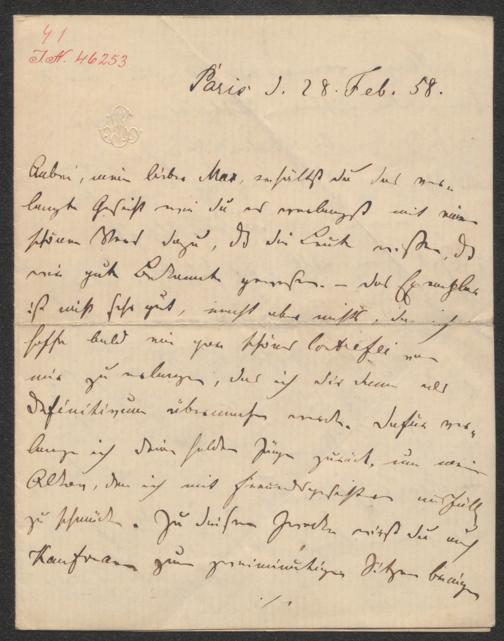 41
I.N. 46253
Paris d. 28. Feb. 58.
Anbei, mein lieber Max, erhältst du das ver-
langte Gesicht wie du es verlangst mit einem
schönen Vers dazu, daß die Leute wissen, daß
wir gute Bekannte gewesen. — Das Exemplar
ist nicht sehr gut, macht aber nichts, da ich
hoffe bald ein ganz schönes Contrefei von
mir zu erlangen, das ich dir dann als
Definitivum übermachen werde. Dafür ver-
lange ich deine holden Züge zurück, um mein
Album, den ich mit Freundsgesichtern
zu schmücken. Zu diesem Zwecke mußt du auch
Kaufmann zum Sitzen bewegen
./.